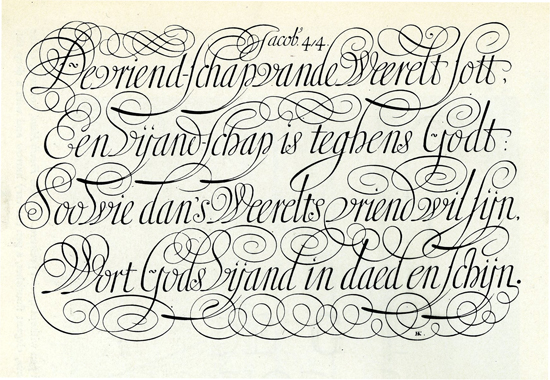 Jacob. 4/4.
De vriend-schap vande Weerelt sott,
Een Vijand-schap is teghens Godt:
Soo Wie dan's Weerelts vriend wil sijn,
Wort Gods Vijand in daed en schijn.